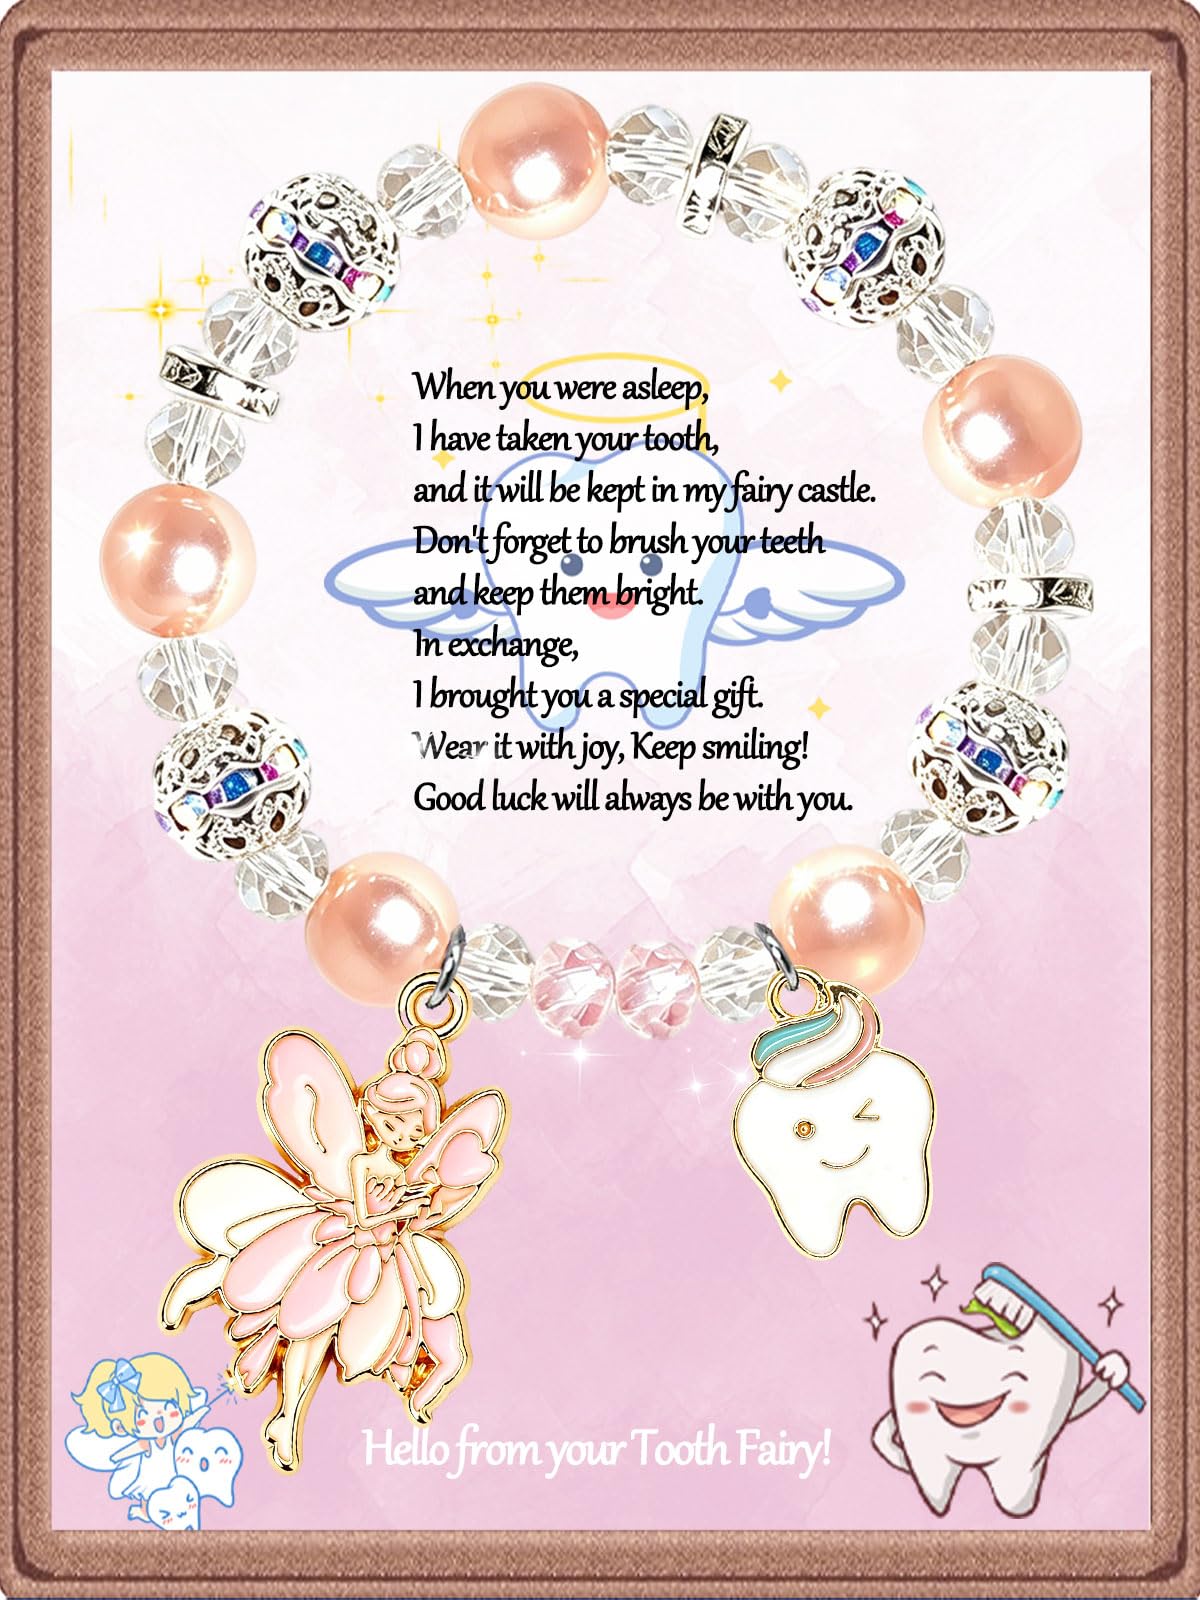 When you were asleep,
I have taken your tooth,
and it will be kept in my fairy castle.
Don't forget to brush your teeth
and keep them bright.
In exchange,
I brought you a special gift.
Wear it with joy, Keep smiling!
Good luck will always be with you.
Hello from your Tooth Fairy!